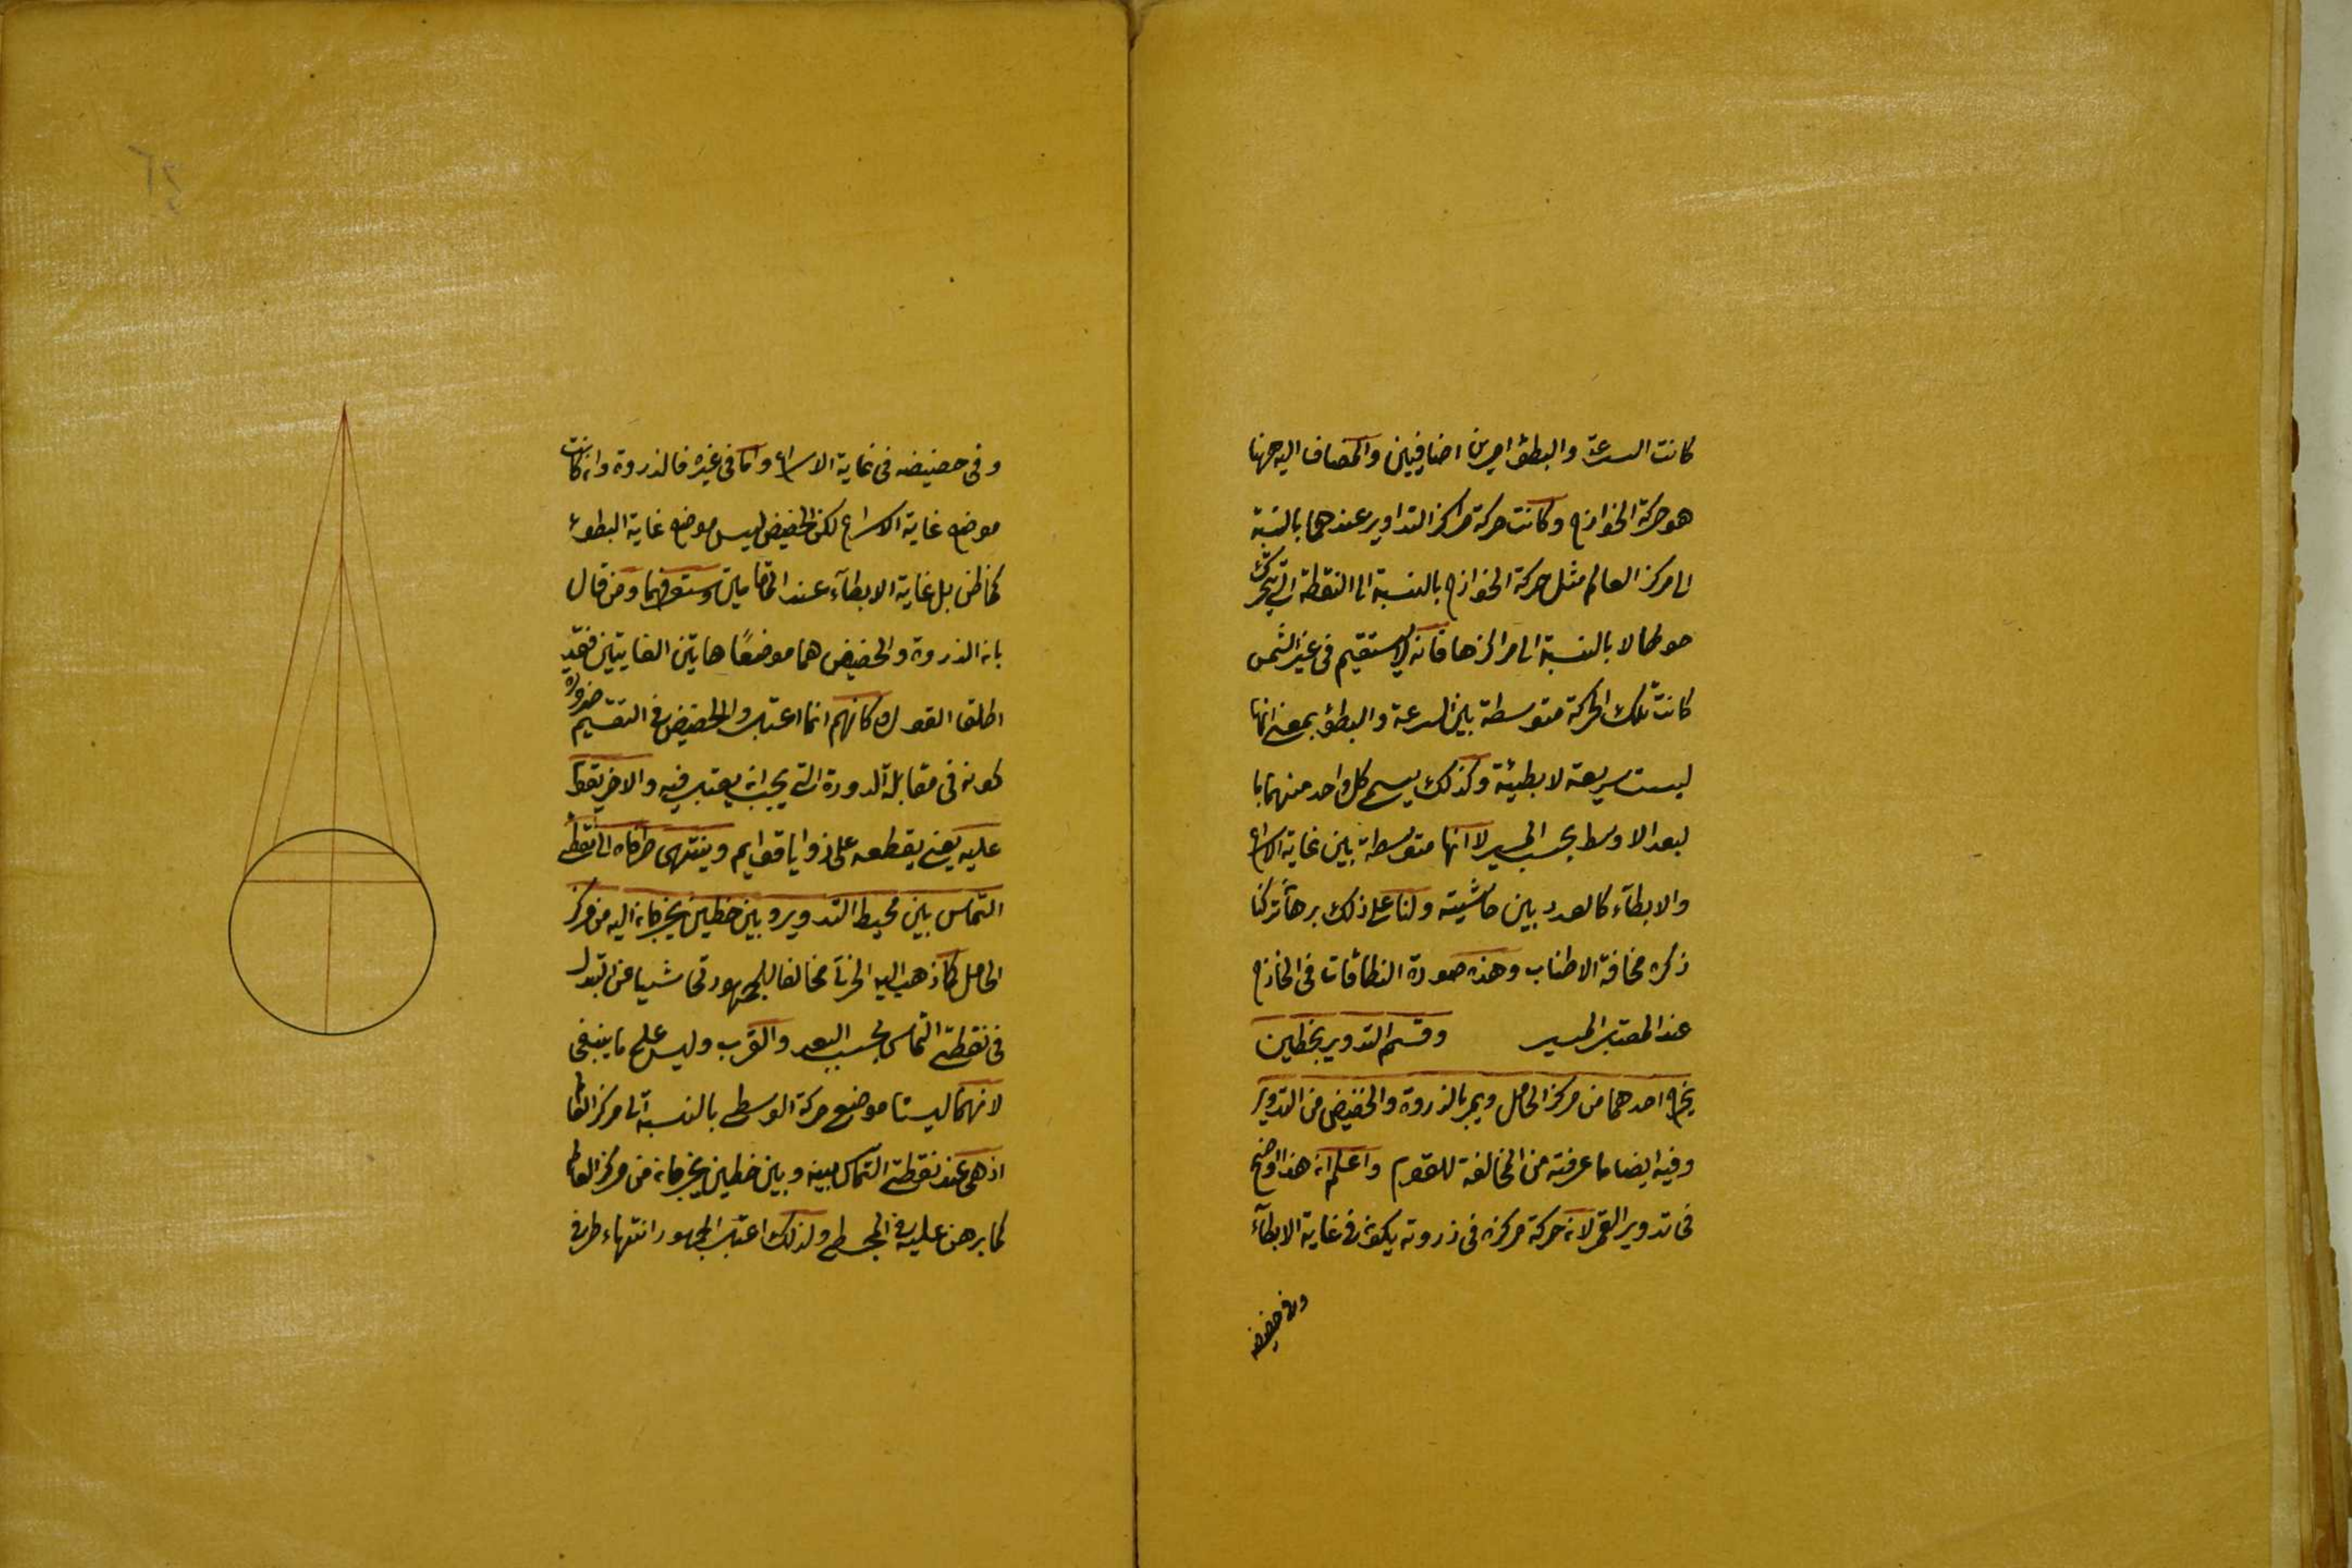 كانت السرعة والبطؤ امرين اضافيين والمضاف اليه ههنا
هو حركة الخوارج وكانت حركة مراكز التداوير عندهما بالنسبة
الى مركز العالم مثل حركة الخوارج بالنسبة الى النقطة التى تتحرك
حولها لا بالنسبة الى مراكزها فانه لا يستقيم فى غير الشمس
كانت تلك الحركة متوسطة بين السرعة والبطؤ بمعنى انها
ليست سريعة لا بطيئة وكذلك يسمى كل واحد منهما با
لبعد الاوسط بحسب المسير لا انها متوسطة بين غاية الاسراع
والابطآء كالعدد بين حاشيته ولنا على ذلك برهان تركنا
ذكره مخافة الاطناب وهذه صورة النطاقات فى الخارج
عند المعتبر المسير وقسم التدوير بخطين
يخرج احدهما من مركز الحامل ويمر بالذروة والحضيض من التدوير
وفيه ايضا ما عرفته من المخالفة للقوم واعلم ان هذا اوضح
فى تدوير القمر لان حركة مركزه فى ذروته يكون فى غاية الابطآء
وفى حضيضه
وفى حضيضه فى غاية الاسراع واما فى غيره فالذروة وان كانت
موضع غاية الاسراع لكن الحضيض ليس موضع غاية البطوء
كما ظن بل غاية الابطآء عند المقامين وستعرفهما ومن قال
بان الذروة والحضيض هما موضعا هاتين الغايتين فقد
اطلق القول وكانهم انما اعتبروا الحضيض فى التقسيم ضرورة
كونه فى مقابلة الدورة التى يجب ان يعتبر فيه والاخر يقوم
عليه يعنى يقطعه على زوايا قوايم وينتهى طرفاه الى نقطتى
التماس بين محيط التدوير وبين خطين يخرجان اليه من مركز
الحامل كما ذهب اليه الخرقى مخالفا للجمهور تحاشيا عن تبدل
فى نقطتى التماس بحسب البعد والقرب وليس على ما ينبغى
لانهما ليستا موضع حركة الوسطى بالنسبة الى مركز العالم
اذ هى عند نقطتى التماس بينه وبين خطين يخرجان من مركز العالم
كما برهن عليه فى المجسطى ولذلك اعتبر الجمهور انتهاء طرفى